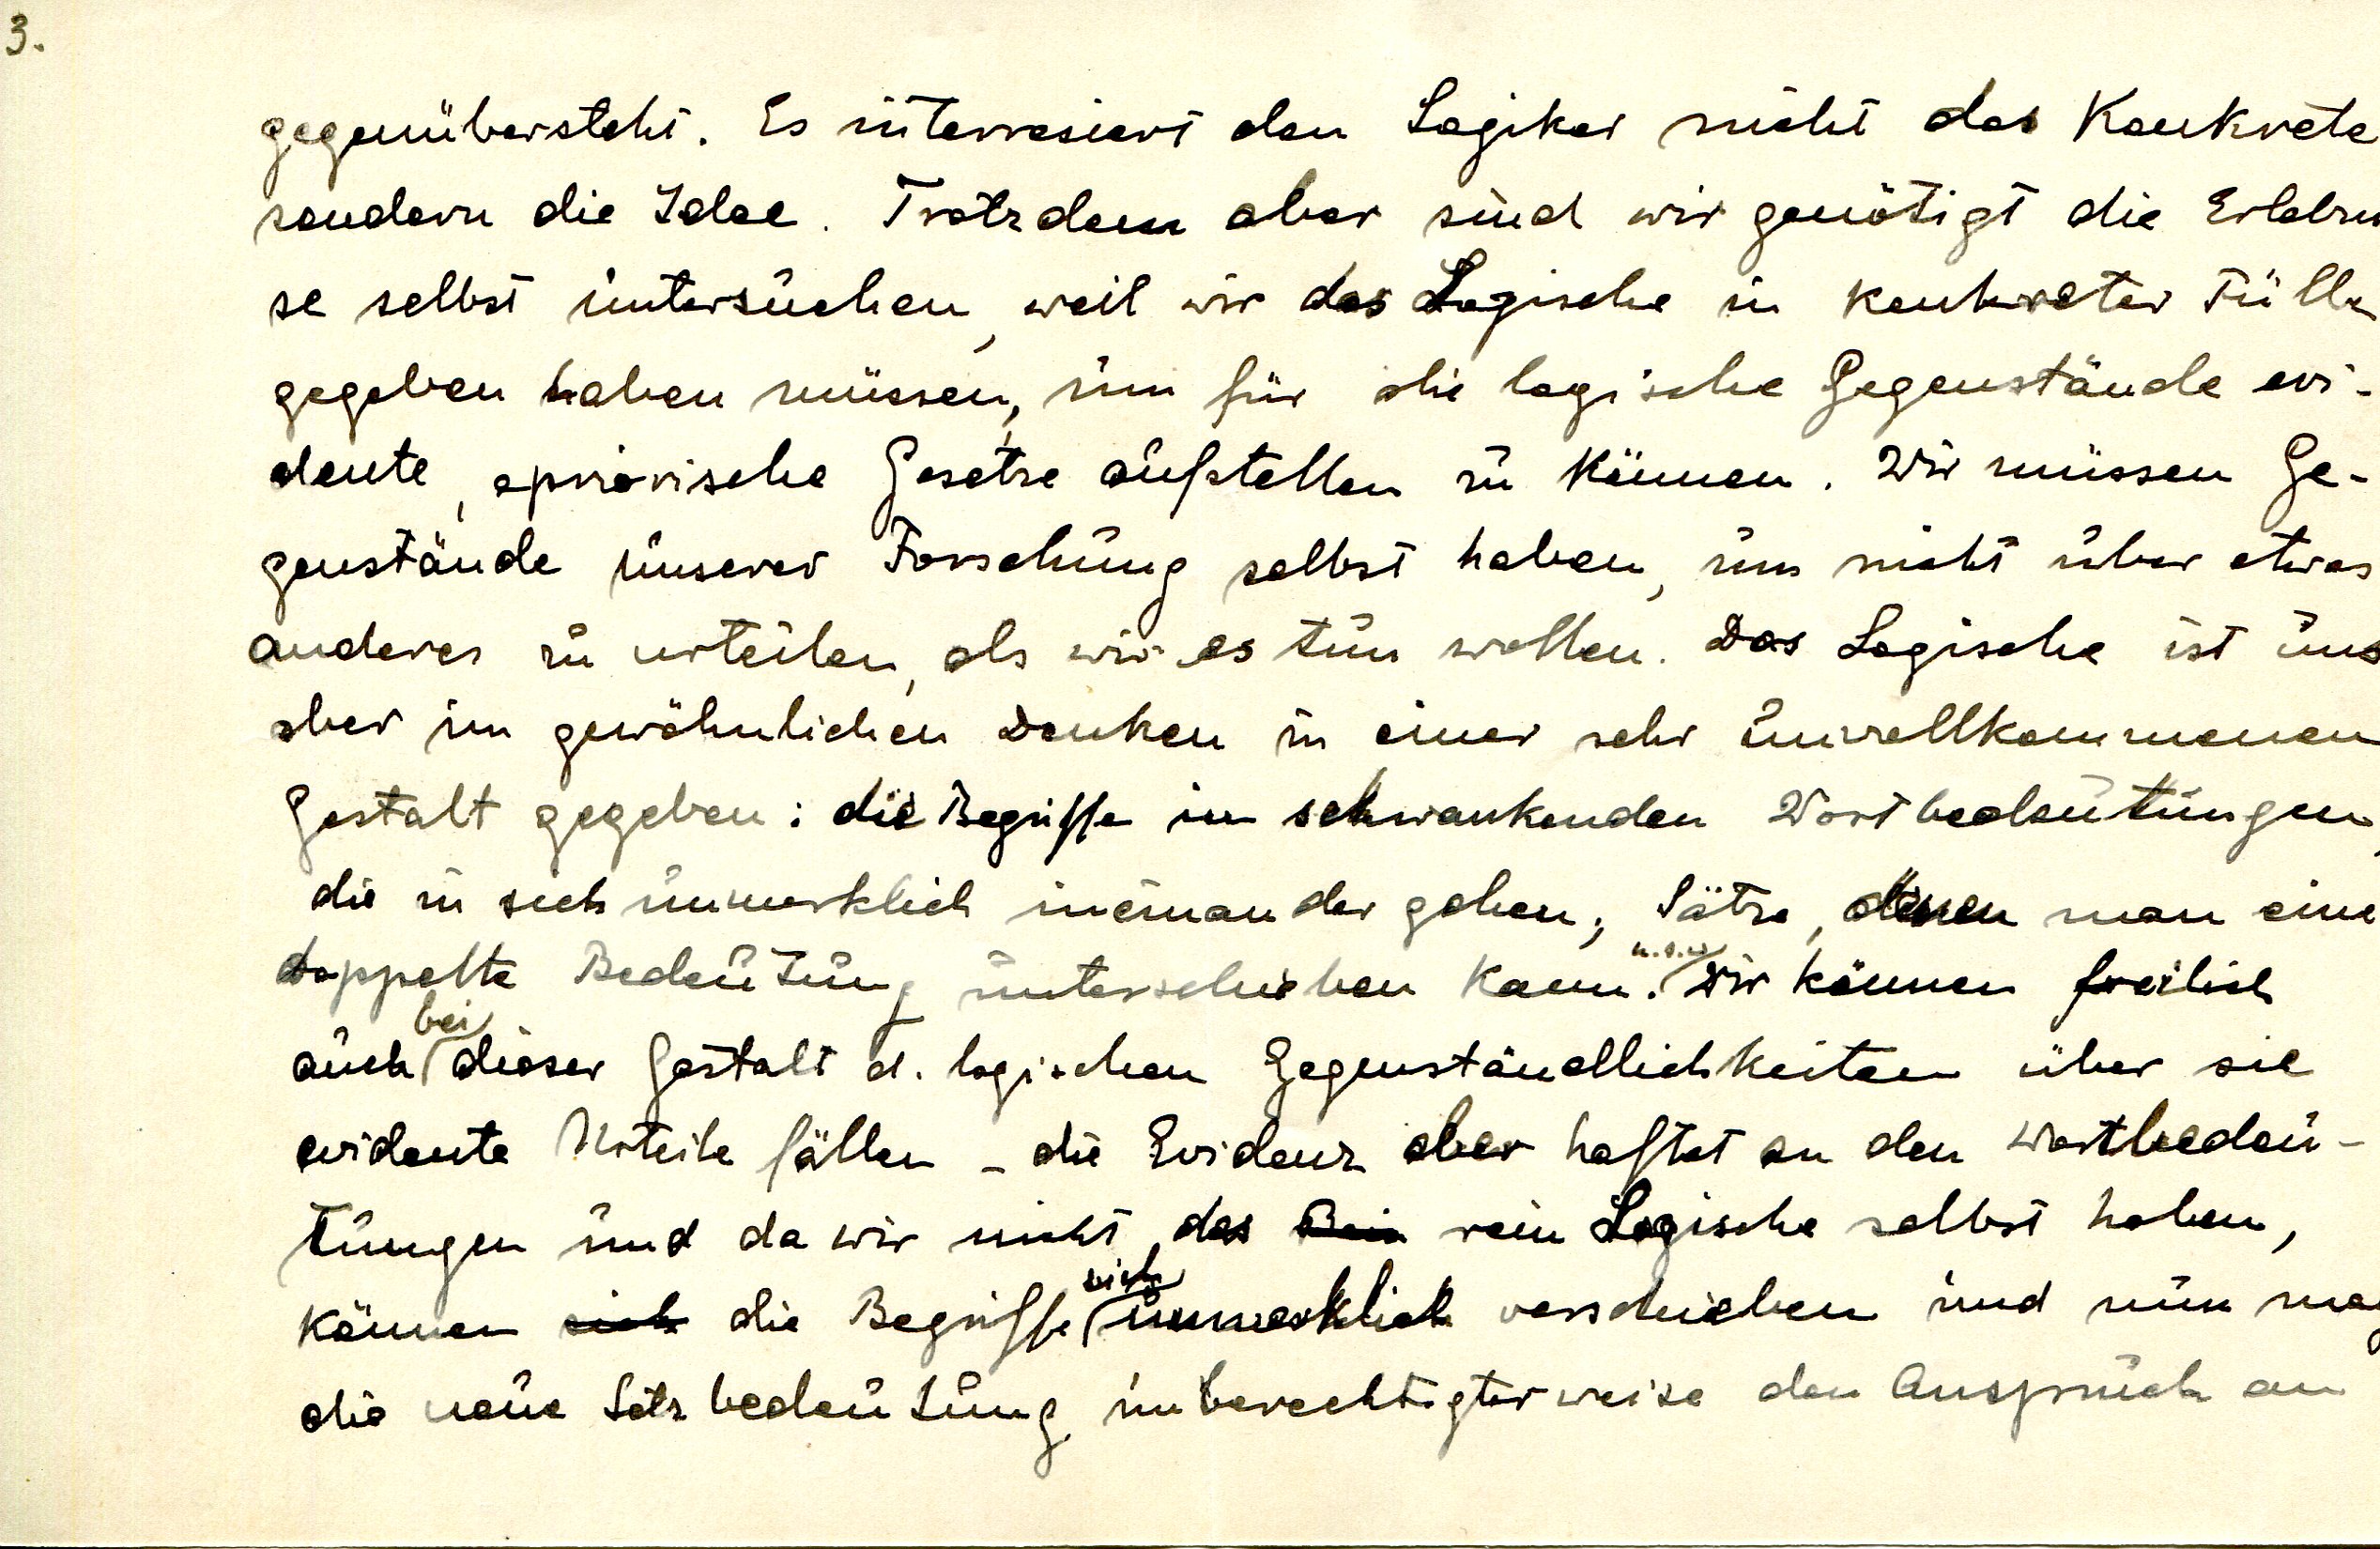 3.
gegenübersteht. Es interresiert den Logiker nicht das Konkrete
sondern die Idee. Trotzdem aber sind wir genötigt die Erlebni
se selbst untersuchen, weil wir das Logische in konkreter Fülle
gegeben haben müssen, um für die logische Gegenstände evi-
dente, apriorische Gesetze aufstellen zu können. Wir müssen Ge-
genstände unserer Forschung selbst haben, um nicht über etwas
anderes zu urteilen, als wir es tun wollen. Das Logische ist uns
aber im gewöhnlichen Denken in einer sehr unvollkommenen
Gestalt gegeben: die Begriffe in schwankenden Wortbedeutungen,
die in sich unmerklich ineinander gehen; Sätze, denen man eine
doppelte Bedeutung unterschieben kann u.s.w. Wir können freilich
auch bei dieser Gestalt d. logischen Gegenständlichkeiten über sie
evidente Urteile fällen – die Evidenz aber haftet an den Wortbedeu-
tungen und da wir nicht das rein Logische selbst haben,
können sich die Begriffe sich unmerklich verschieben und nun mag
die neue Satzbedeutung unberechtigterweise den Anspruch an